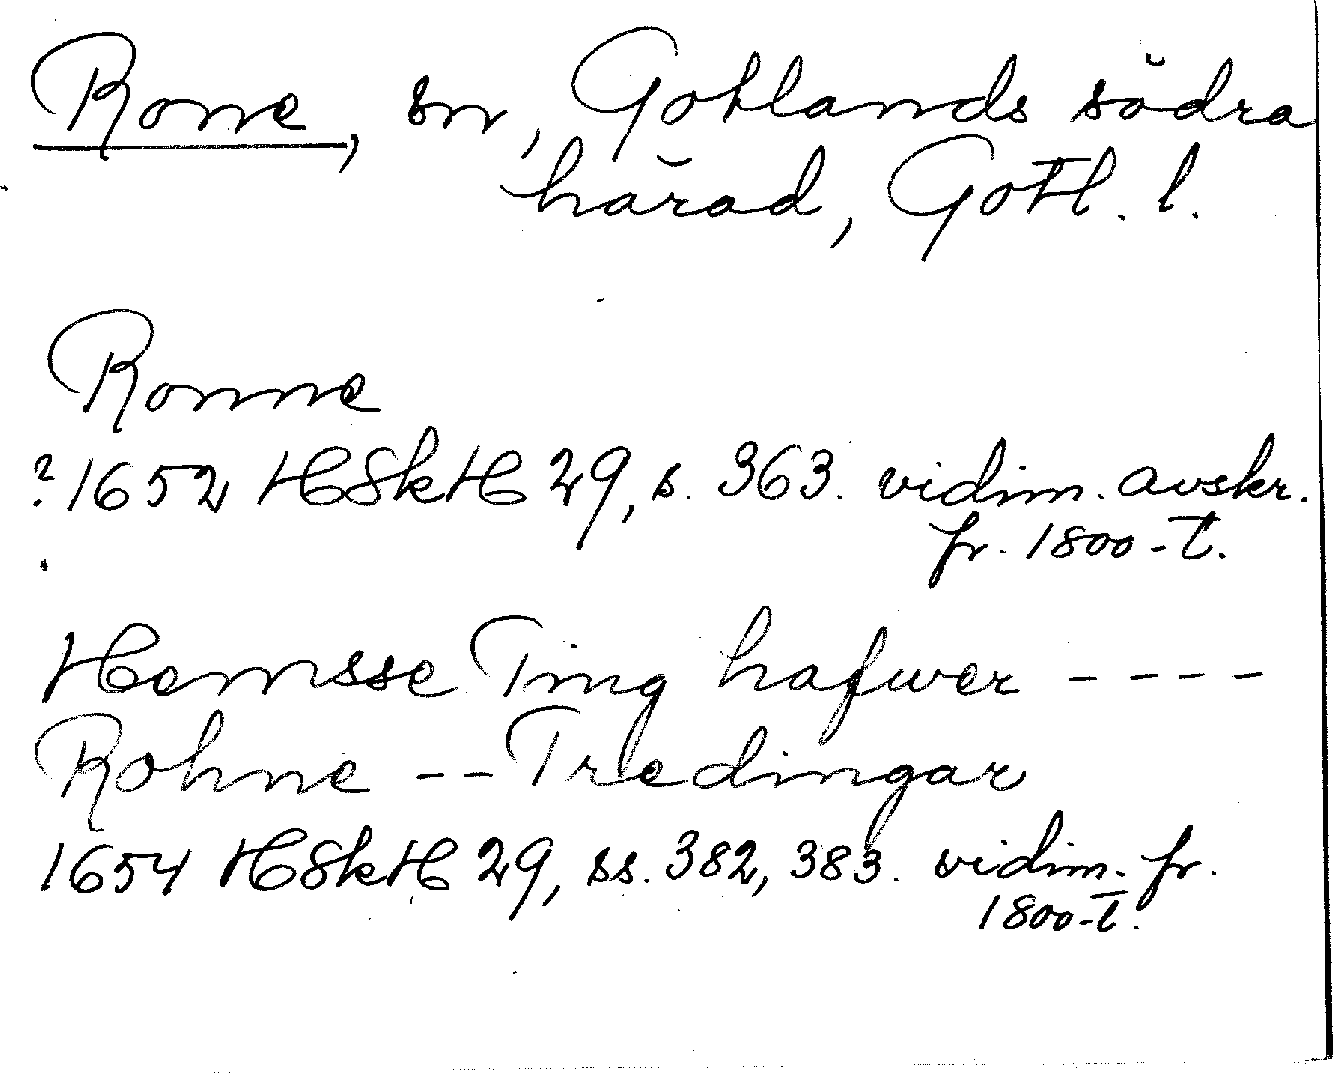 Rone, sn, Gotlands södra
härad, Gotl. l.
Ronne
? 1652 HSkH 29, s. 363. vidim. avskr.
fr. 1800-t.
Hemsse Ting hafwer ----
Rohne -- Tredingar
1654 HSkH 29, ss. 382, 383. vidim. fr.
1800-t.